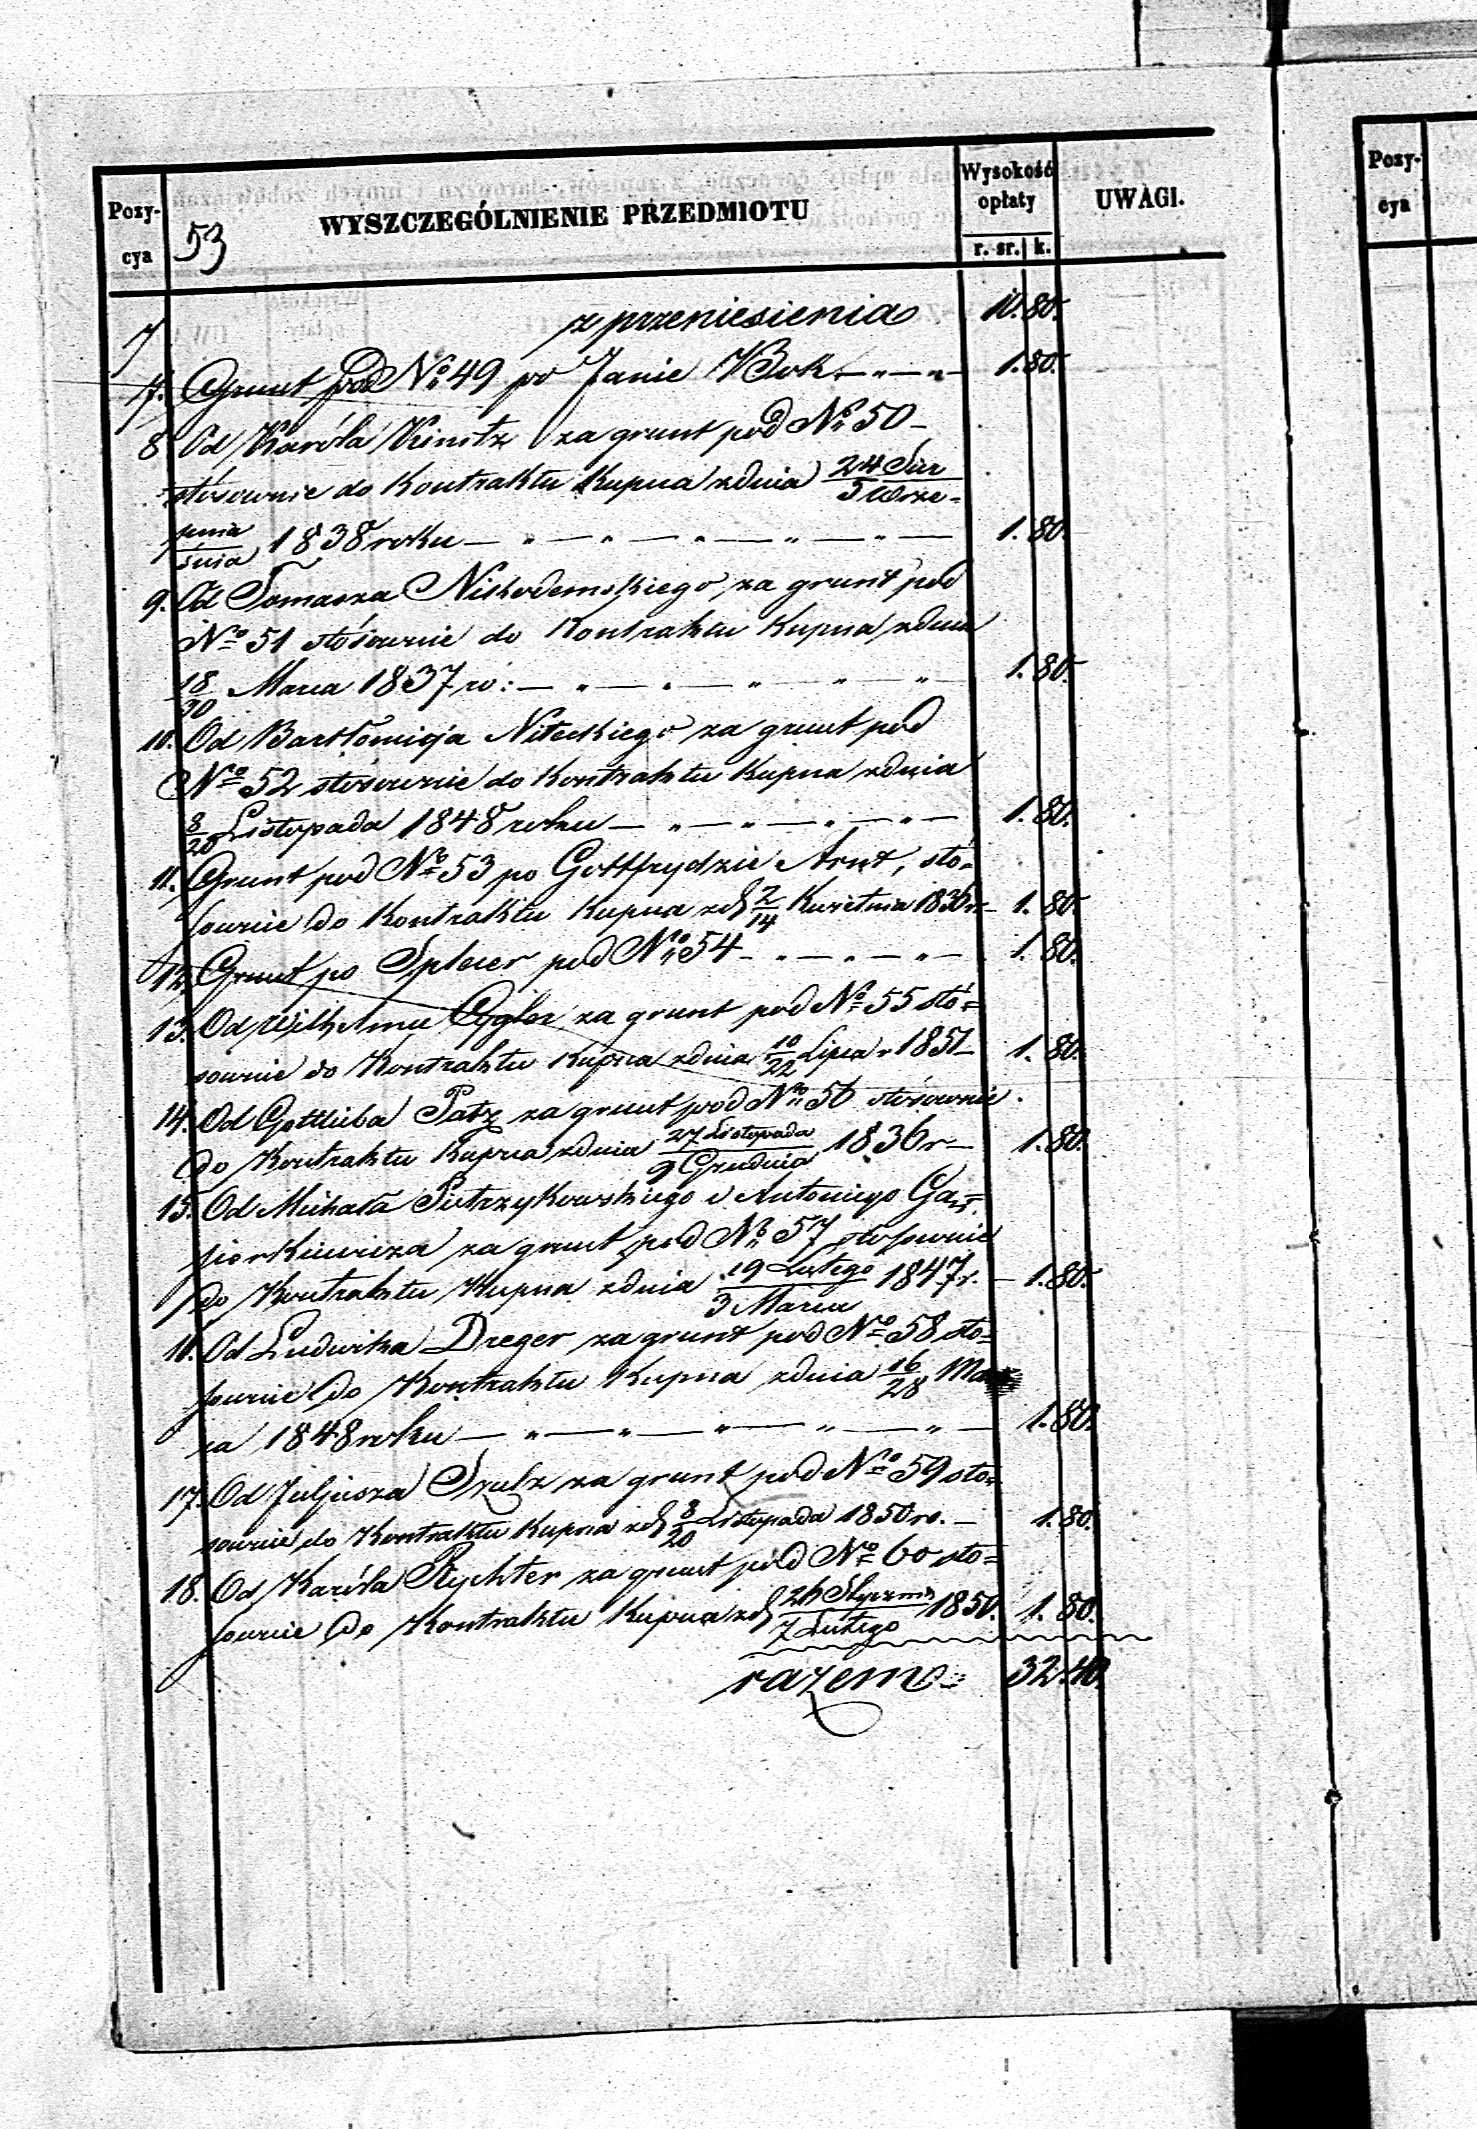 Pozy-
cya
53
WYSZCZEGÓLNIENIE PRZEDMIOTU
Wysokość
opłaty
r. sr. k.
UWAGI.
Pozy-
cya
z przeniesienia 10. 80.
7. Grunt pod No 49 po Janie Bok — „ — „ 1. 80.
8 Od Karóla Kimtz za grunt pod No 50 –
stósownie do Kontraktu Kupna z dnia 24 Sier / 5 Wrze-
pnia / śnia 1838 roku — „ — „ — „ — „ — „ — 1. 80.
9. Od Tomasza Nikodemskiego za grunt pod
No 51 stósownie do Kontraktu Kupna z dnia
18/30 Marca 1837 ro: — „ — „ — „ — „ — „ — 1. 80.
10. Od Bartłomieja Niteckiego za grunt pod
No 52 stósownie do Kontraktu Kupna z dnia
8/20 Listopada 1848 roku — „ — „ — „ — „ — „ — 1. 80.
11. Grunt pod No 53 po Gottfrydzie Arnt, stó-
sownie do Kontraktu Kupna z d 2/14 Kwietnia 1836 r – 1. 80.
12. Grunt po pod No 54 – „ — „ — „ — 1. 80.
13. Od Wilhelma za grunt pod No 55 stó=
sownie do Kontraktu Kupna z dnia 10/22 Lipca r 1851 – 1. 80.
14. Od Gottliba Patz za grunt pod No 56 stósownie
do Kontraktu Kupna z dnia 27 Listopada / 9 Grudnia 1836 r — 1. 80.
15. Od Michała Pietrzykowskiego i Antoniego Gą=
siorkiewicza za grunt pod No 57 stosownie
do Kontraktu Kupna z dnia 19 Lutego / 3 Marca 1847 r. – 1. 80.
16. Od Ludwika Dreger za grunt pod No 58 sto=
sownie do Kontraktu Kupna z dnia 16/28 Mar
ca 1848 roku — „ — „ — „ — „ — „ — 1. 80.
17. Od Juljusza Szulz za grunt pod No 59 sto=
sownie do Kontraktu Kupna z d 8/20 Listopada 1850 ro. – 1. 80.
18. Od Karóla Rychter za grunt pod No 60 sto=
sownie do Kontraktu Kupna z d 26 Stycznia / 7 Lutego 1850. 1. 80.
razem 32. 40.